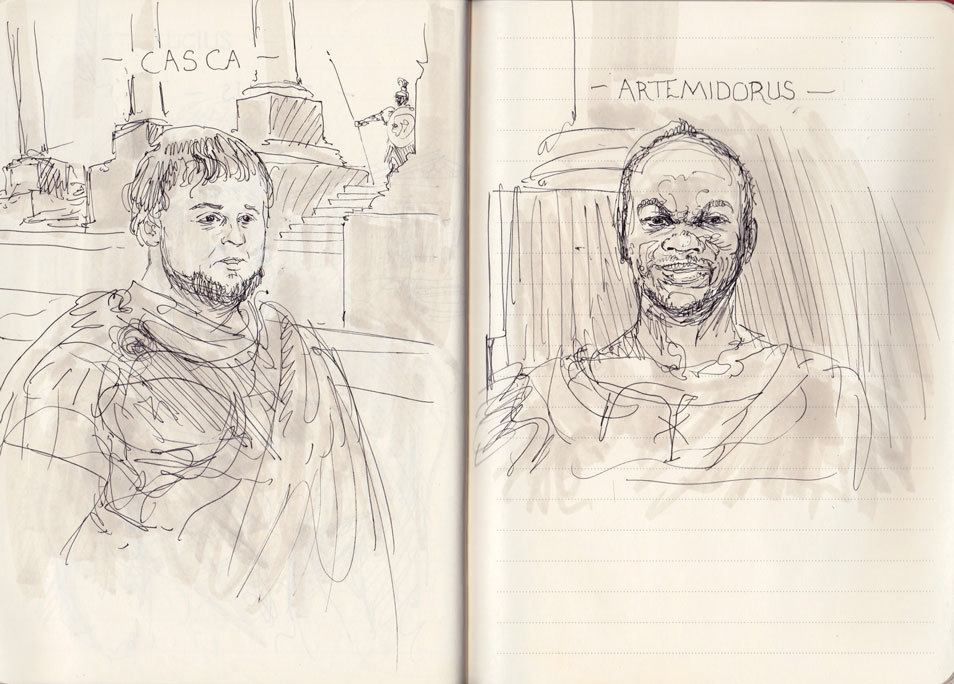 - CASCA -
- ARTEMIDORUS -